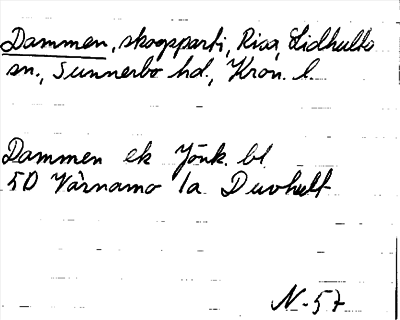 Dammen, skogsparti, Risa, Lidhults
sn., Sunnerbo hd., Kron. l.
Dammen ek Jönk. bl.
5D Värnamo 1a Duvhult
N-57